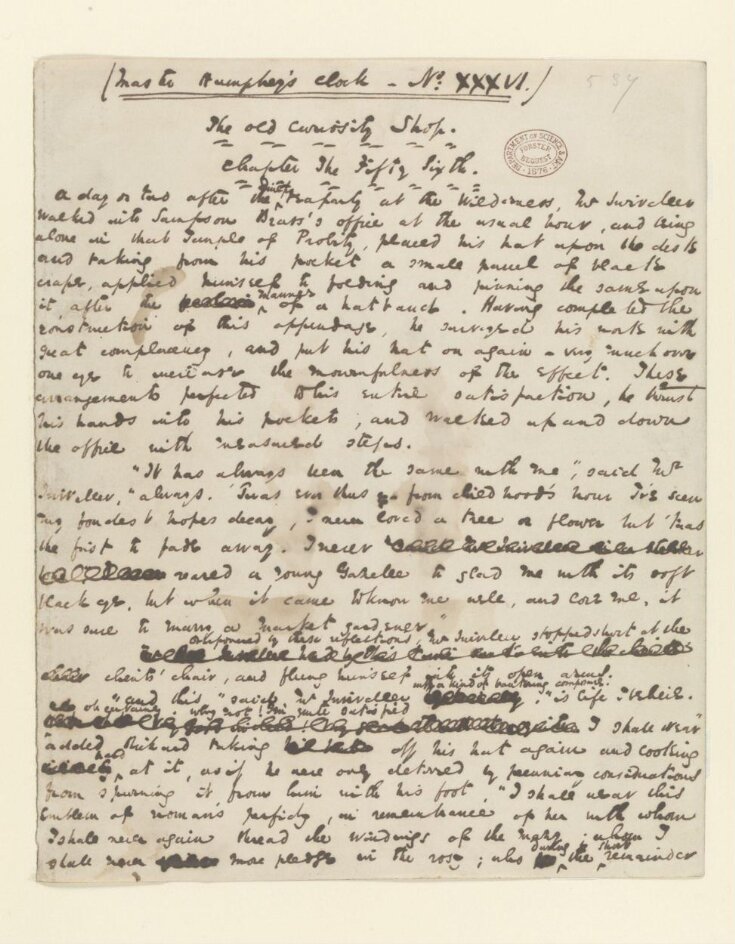 (Master Humphrey's Clock – No. XXXVI.)
534
The old Curiosity Shop.
Chapter The Fifty Sixth.
DEPARTMENT OF SCIENCE & ART
FORSTER BEQUEST 1876
A day or two after the Quilp teaparty at the Wilderness, Mr Swiveller
walked into Sampson Brass's office at the usual hour, and being
alone in that Temple of Probity, placed his hat upon the desk
and taking from his pocket a small parcel of black
crape, applied himself to folding and pinning the same upon
it, after the manner of a hatband. Having completed the
construction of this appendage, he surveyed his work with
great complacency, and put his hat on again – very much over
one eye to increase the mournfulness of the effect. These
arrangements perfected to his entire satisfaction, he thrust
his hands into his pockets, and walked up and down
the office with measured steps.
"It has always been the same with me", said Mr
Swiveller, "always. 'Twas ever thus – from childhood's hour I've seen
my fondest hopes decay, I never loved a tree or flower but 'twas
the first to fade away. I never
nursed a young Gazelle to glad me with its soft
black eye, but when it came to know me well, and love me, it
was sure to marry a market gardener."
Overpowered by these reflections, Mr Swiveller stopped short at the
clients' chair, and flung himself into its open arms.
"And this" said Mr Swiveller with a kind of bantering composure, "is life I believe.
oh certainly. Why not! I'm quite satisfied
I shall wear"
added Richard taking off his hat again and looking
hard at it, as if he were only deterred by pecuniary considerations
from spurning it from him with his foot, "I shall wear this
Emblem of woman's perfidy, in remembrance of her with whom
I shall never again thread the windings of the mazy; whom I
shall never more pledge in the rosy; who during the short remainder